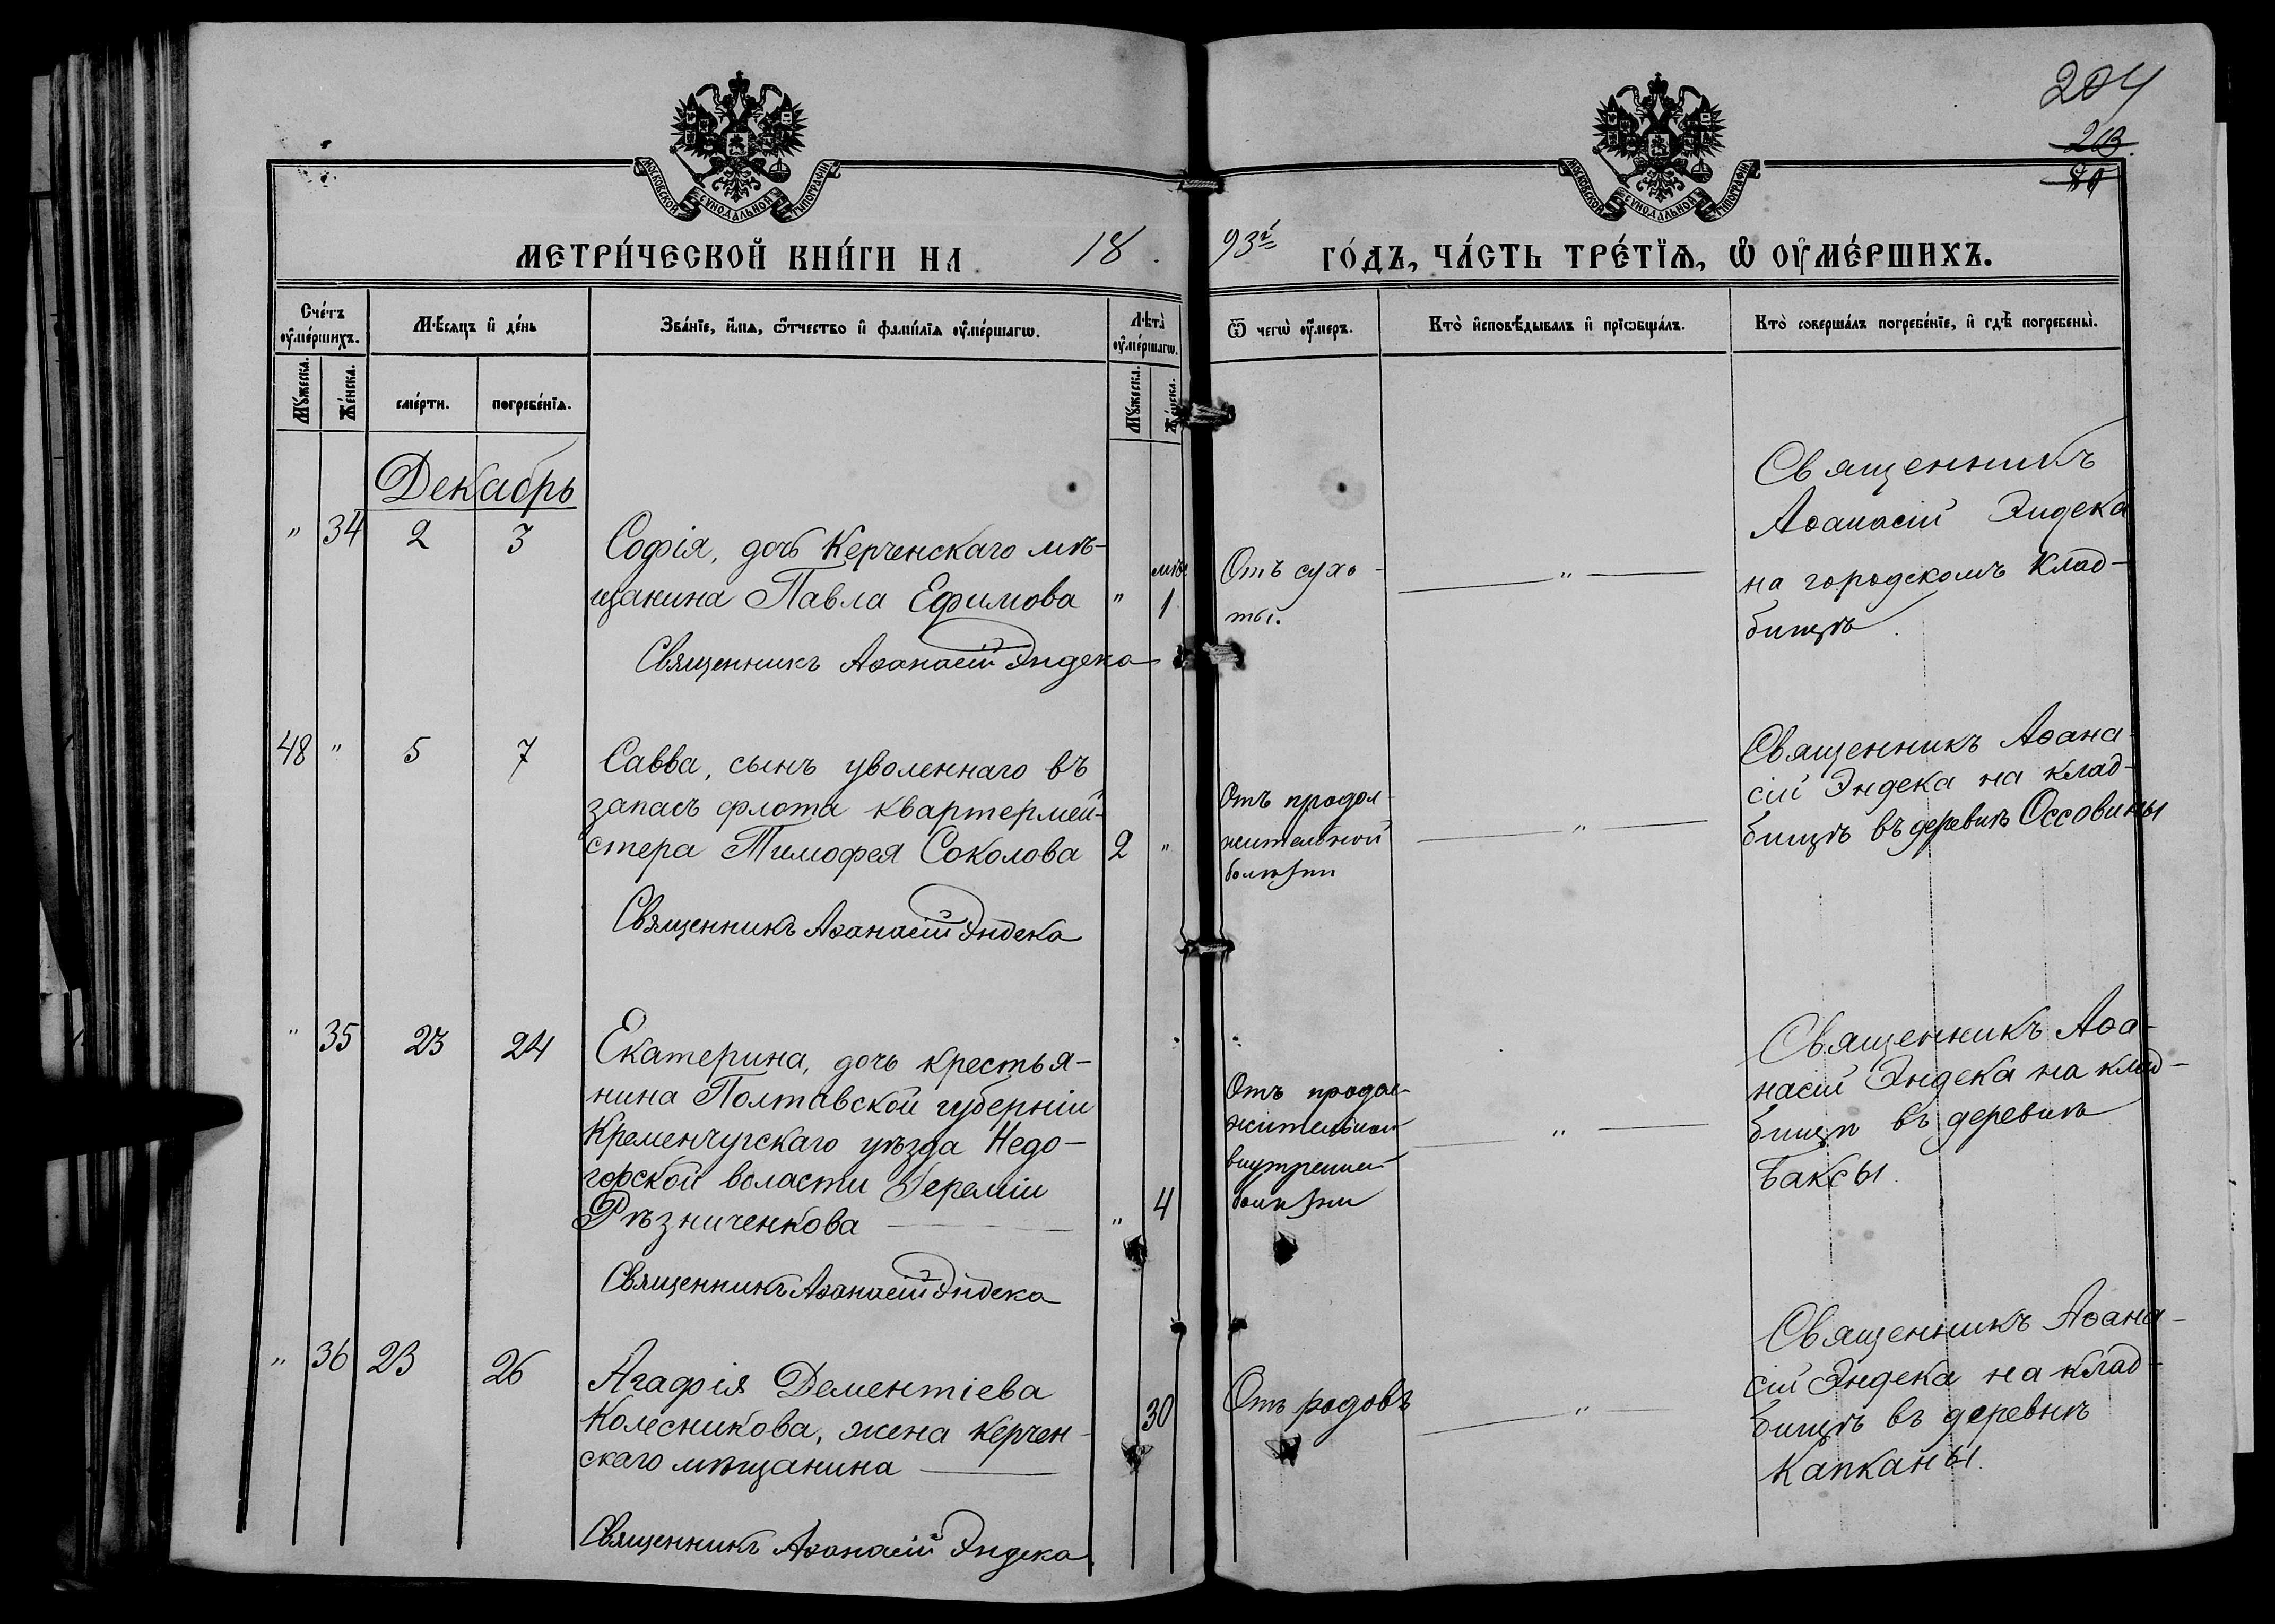 204
203
МОСКОВСКОЙ СѴНОДАЛЬНОЙ ТИПОГРАФІИ
МОСКОВСКОЙ СѴНОДАЛЬНОЙ ТИПОГРАФІИ
МЕТРИ́ЧЕСКОЙ КНИ́ГИ НА 18
93й ГО́ДЪ, ЧА́СТЬ ТРЕ́ТІѦ, Ѽ ОУ҆МЕ́РШИХЪ.
Сче́тъ оу҆ме́ршихъ.
Мѣ́сяцъ и҆ де́нь
Зва́нїе, и҆́мѧ, ѻ҆́тчество и҆ фами́лїѧ оу҆ме́ршагѡ.
Лѣ́та̀ оу҆ме́ршагѡ.
Ѿ чегѡ̀ оу҆́меръ.
Кто̀ и҆сповѣ́дывалъ и҆ прїѡбща́лъ.
Кто̀ соверша́лъ погребе́нїе, и҆ гдѣ̀ погребены̀.
Мꙋ́жеска.
Же́нска.
сме́рти.
погребе́нїѧ.
Мꙋ́жеска.
Же́нска.
Декабрь
" 34 2 3
Софія, дочь Керченскаго мѣ-
щанина Павла Ефимова " мѣс 1
Священникъ Аѳанасій Эндека
Отъ сухо-
ты.
"
Священникъ
Аѳанасій Эндека
на городскомъ клад-
бищѣ.
48 " 5 7
Савва, сынъ уволеннаго въ
запасъ флота квартермей-
стера Тимофея Соколова 2 "
Священникъ Аѳанасій Эндека
Отъ продол-
жительной
болѣзни
"
Священникъ Аѳана-
сій Эндека на клад-
бищѣ въ деревнѣ Оссовины
" 35 23 24
Екатерина, дочь крестья-
нина Полтавской губерніи
Кременчугскаго уѣзда Недо-
горской воласти Іереміи
Рѣзниченкова " 4
Священникъ Аѳанасій Эндека
Отъ продол-
жительной
внутренней
болѣзни
"
Священникъ Аѳа-
насій Эндека на клад-
бищѣ въ деревнѣ
Баксы.
" 36 23 26
Агафія Дементіева
Колесникова, жена керчен-
скаго мѣщанина 30
Священникъ Аѳанасій Эндека
Отъ родовъ
"
Священникъ Аѳана-
сій Эндека на клад-
бищѣ въ деревнѣ
Капканы.